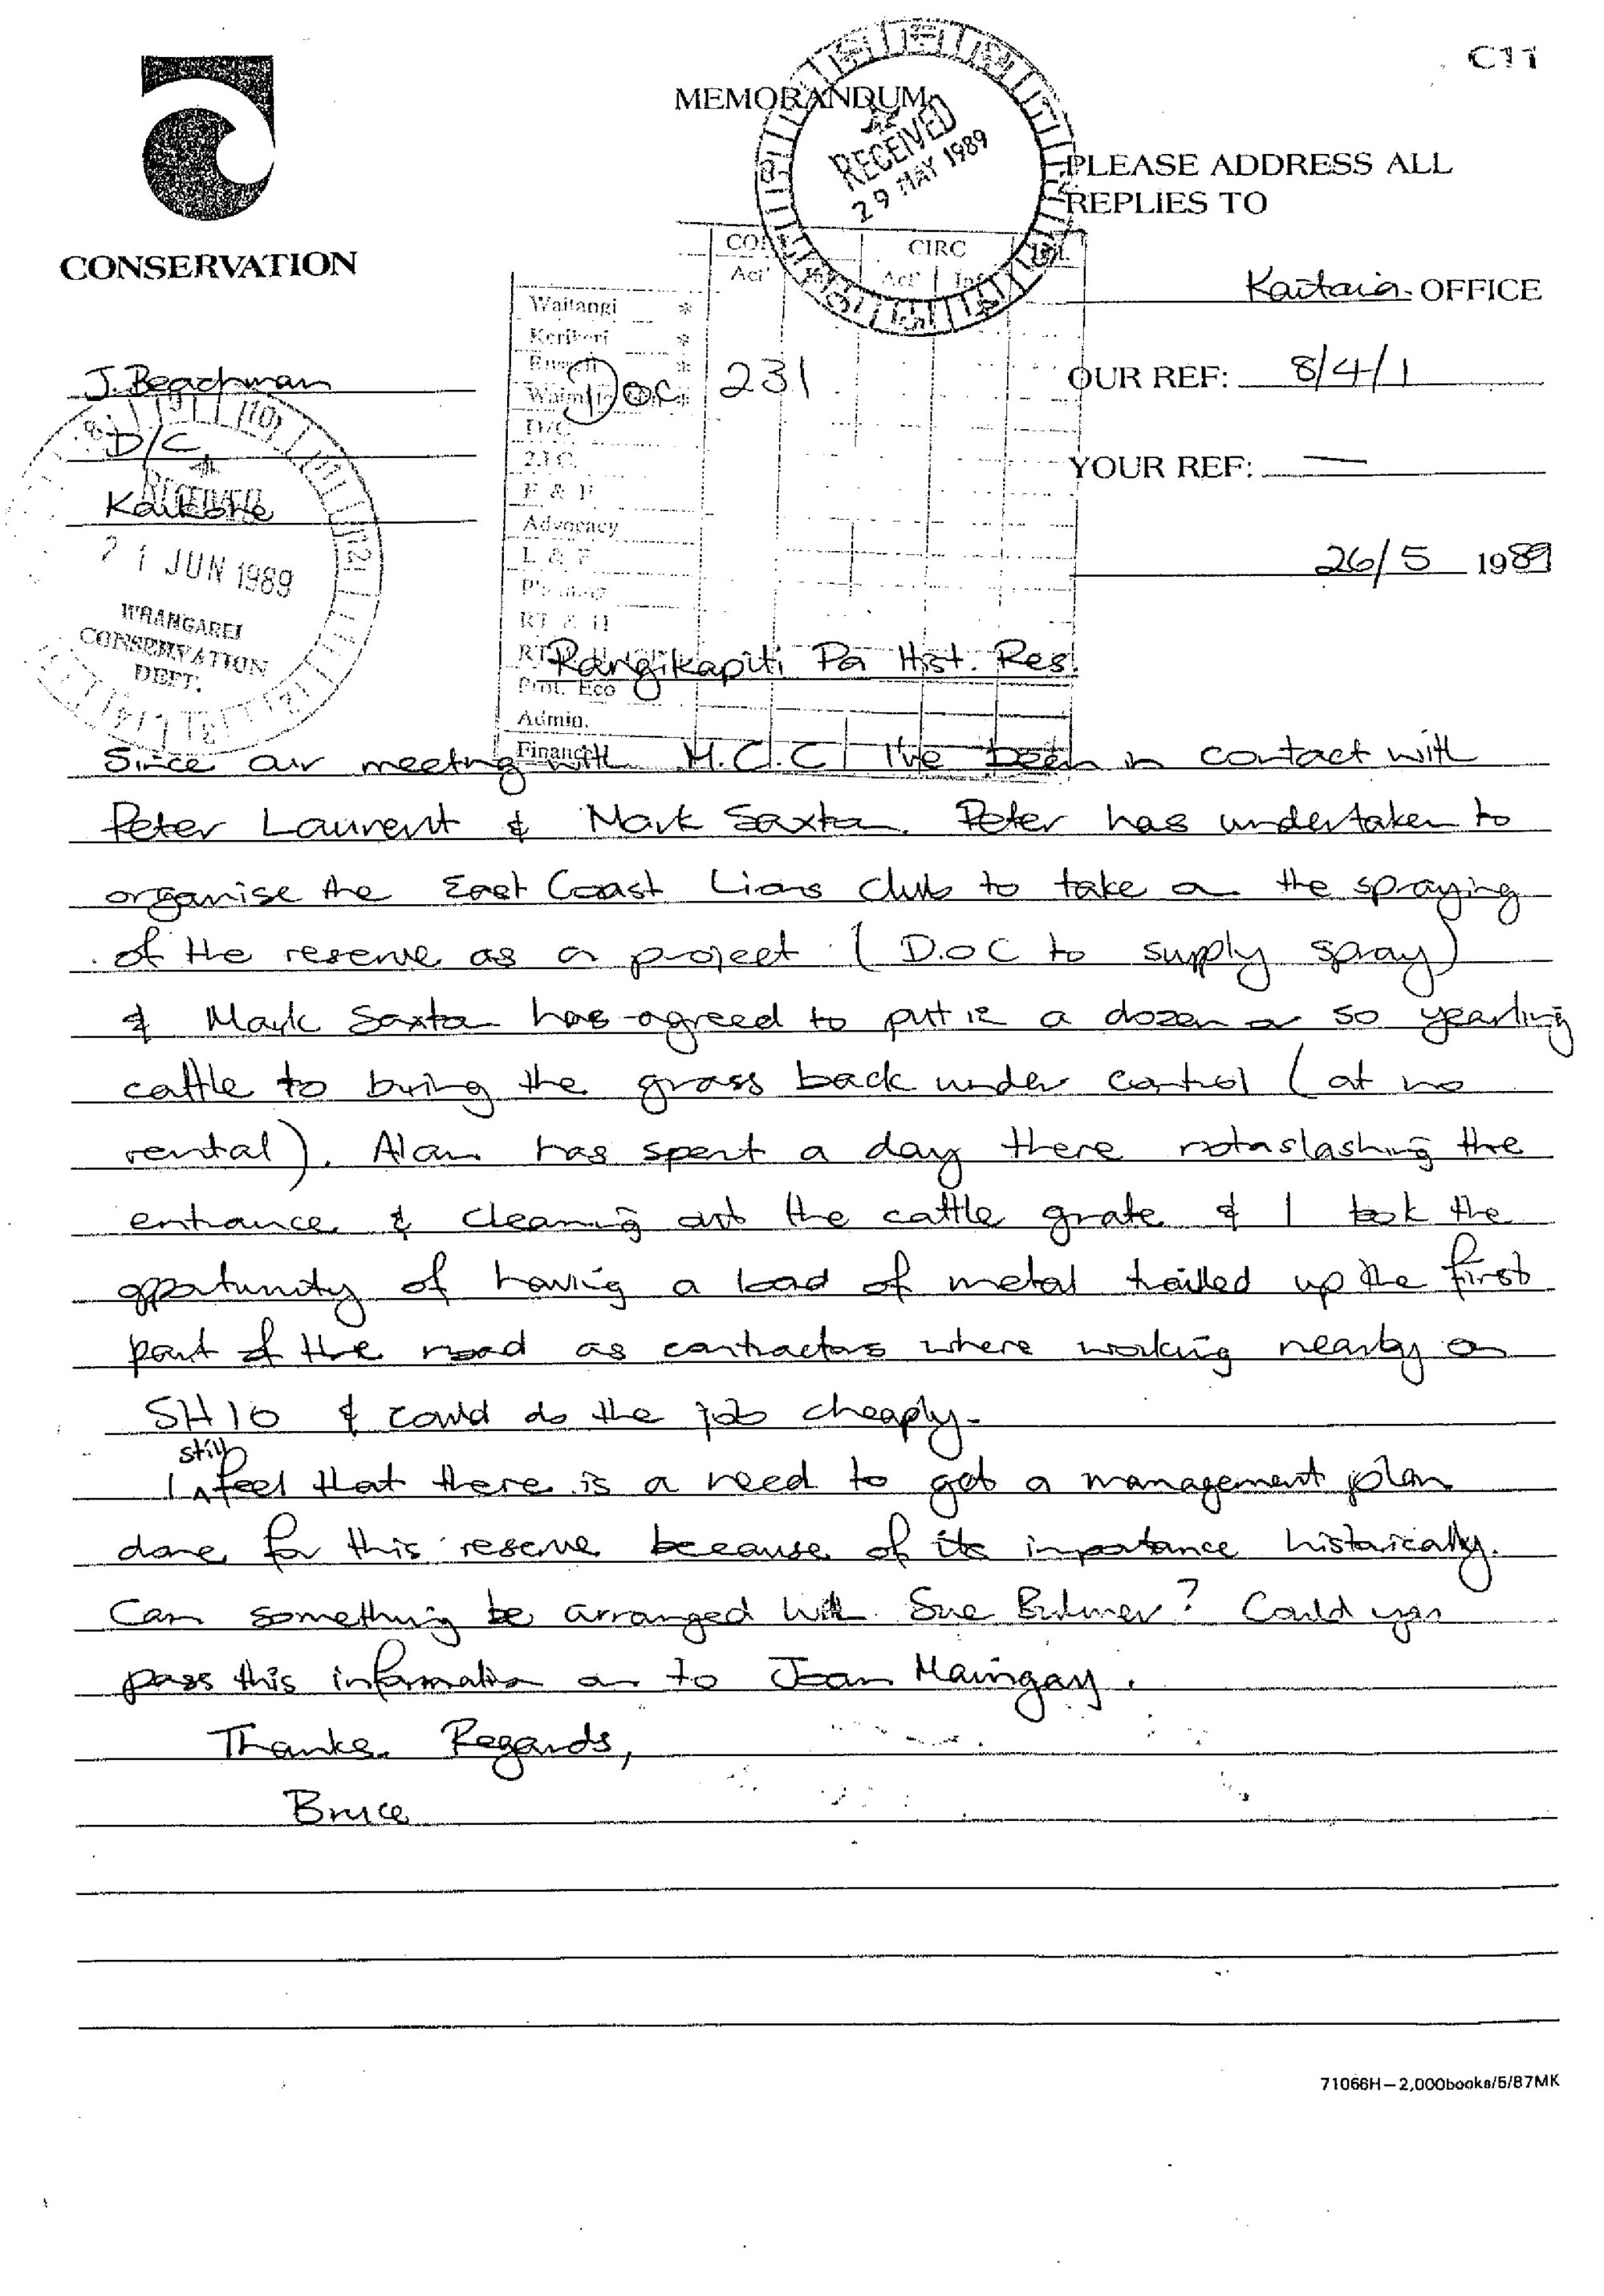 C11
MEMORANDUM
RECEIVED
29 MAY 1989
PLEASE ADDRESS ALL
REPLIES TO
CONSERVATION
Kaitaia OFFICE
CIRC
Act' Act' Inf
Waitangi *
Kerikeri *
D/C
Advocacy
L & F
Prot. Eco
Admin.
Finance
Doc 231
J. Beachman
D/C
Kaikohe
OUR REF: 8/4/1
YOUR REF: —
26/5 1989
RECEIVED
21 JUN 1989
WHANGAREI
CONSERVATION
DEPT.
Rangikapiti Pa Hist. Res.
Since our meeting with M.C.C I've been in contact with
Peter Laurent & Mark Saxton. Peter has undertaken to
organise the East Coast Lions club to take on the spraying
of the reserve as a project (D.O.C to supply spray)
& Mark Saxton has agreed to put in a dozen or so yearling
cattle to bring the grass back under control (at no
rental). Alan has spent a day there rotaslashing the
entrance & cleaning out the cattle grate & I took the
opportunity of having a load of metal trailed up the first
part of the road as contractors where working nearby on
SH10 & could do the job cheaply.
I still feel that there is a need to get a management plan
done for this reserve because of its importance historically.
Can something be arranged with Sue Bulmer? Could you
pass this information on to Joan Maingay.
Thanks. Regards,
Bruce
71066H—2,000books/5/87MK